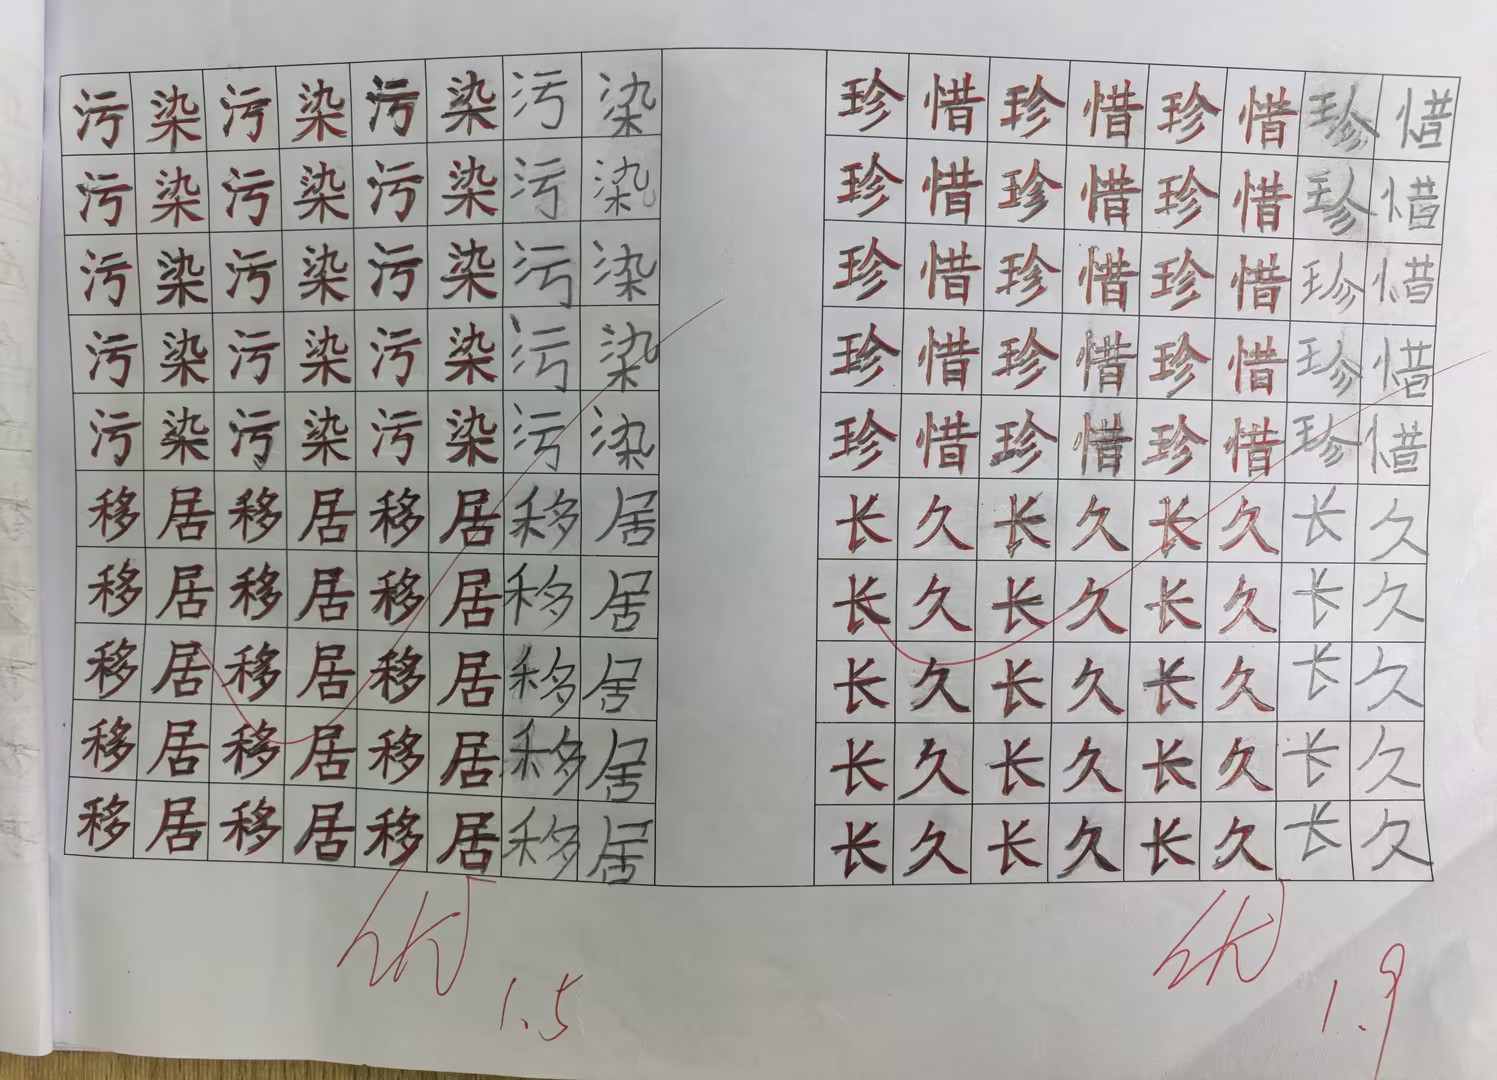 污染污染污染污染
污染污染污染污染
污染污染污染污染
污染污染污染污染
污染污染污染污染
移居移居移居移居
移居移居移居移居
移居移居移居移居
移居移居移居移居
移居移居移居移居
优
1.5
珍惜珍惜珍惜珍惜
珍惜珍惜珍惜珍惜
珍惜珍惜珍惜珍惜
珍惜珍惜珍惜珍惜
珍惜珍惜珍惜珍惜
长久长久长久长久
长久长久长久长久
长久长久长久长久
长久长久长久长久
长久长久长久长久
优
1.9